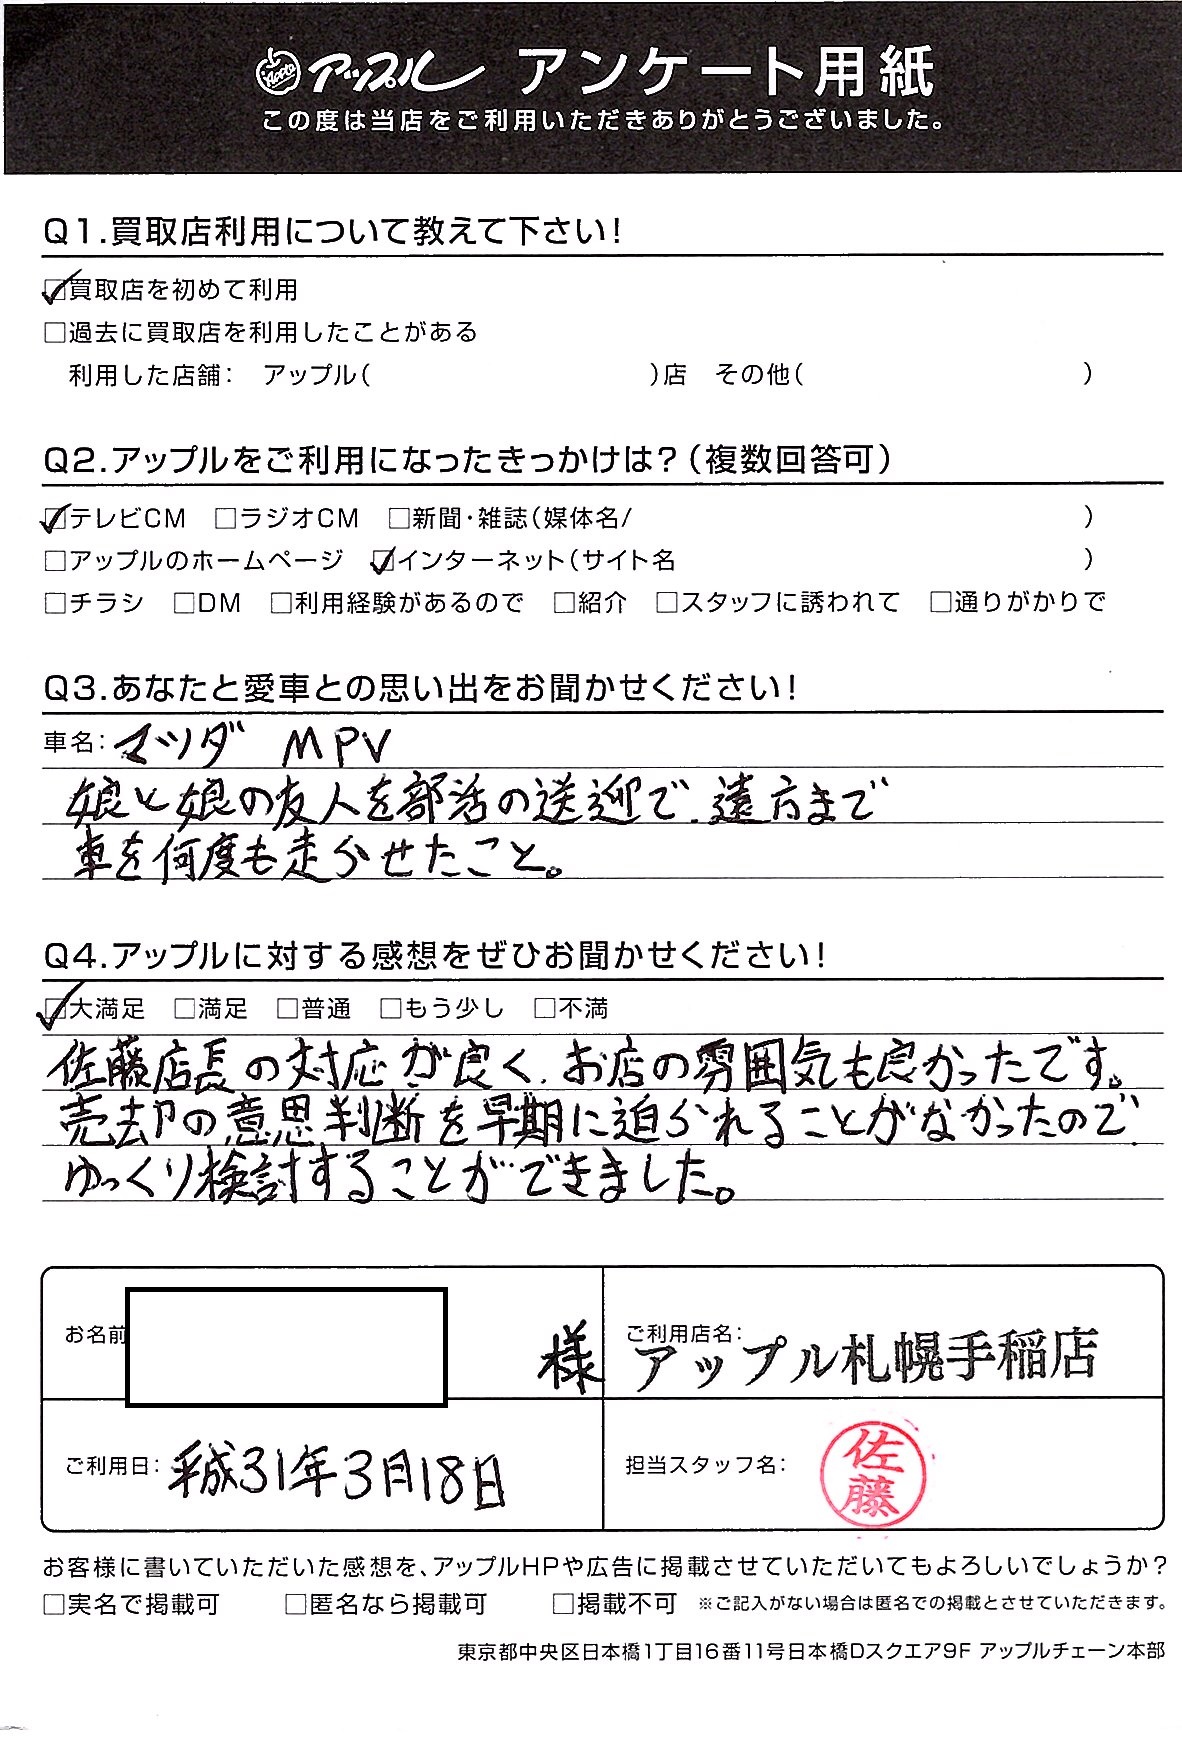 Apple アップル アンケート用紙
この度は当店をご利用いただきありがとうございました。
Q1.買取店利用について教えて下さい!
☑買取店を初めて利用
□過去に買取店を利用したことがある
利用した店舗: アップル( )店 その他( )
Q2.アップルをご利用になったきっかけは?(複数回答可)
☑テレビCM □ラジオCM □新聞・雑誌(媒体名/ )
□アップルのホームページ ☑インターネット(サイト名 )
□チラシ □DM □利用経験があるので □紹介 □スタッフに誘われて □通りがかりで
Q3.あなたと愛車との思い出をお聞かせください!
車名: マツダ MPV
娘と娘の友人を部活の送迎で、遠方まで
車を何度も走らせたこと。
Q4.アップルに対する感想をぜひお聞かせください!
☑大満足 □満足 □普通 □もう少し □不満
佐藤店長の対応が良く、お店の雰囲気も良かったです。
売却の意思判断を早期に迫られることがなかったので、
ゆっくり検討することができました。
お名前 様
ご利用店名:
アップル札幌手稲店
ご利用日: 平成31年3月18日
担当スタッフ名: 佐藤
お客様に書いていただいた感想を、アップルHPや広告に掲載させていただいてもよろしいでしょうか?
□実名で掲載可 □匿名なら掲載可 □掲載不可 ※ご記入がない場合は匿名での掲載とさせていただきます。
東京都中央区日本橋1丁目16番11号日本橋Dスクエア9F アップルチェーン本部